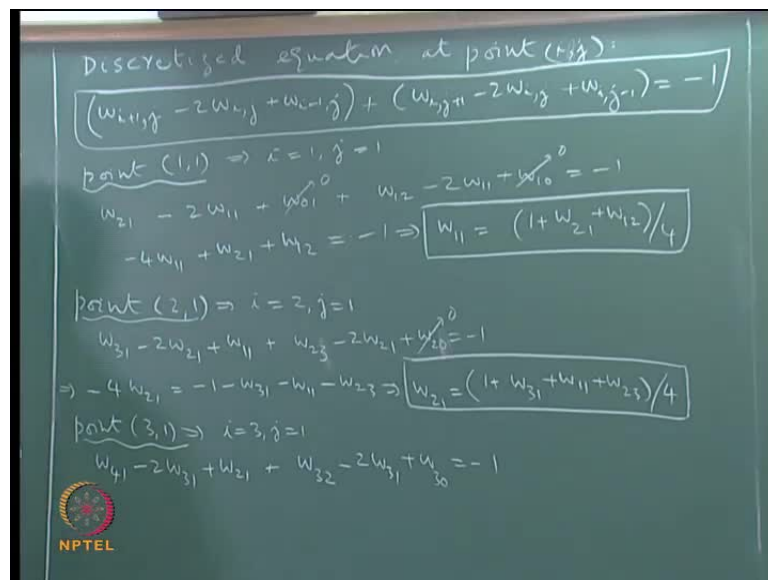 Discretized equation at point (i,j):
(w_{i+1,j} - 2w_{i,j} + w_{i-1,j}) + (w_{i,j+1} - 2w_{i,j} + w_{i,j-1}) = -1
point (1,1) ⇒ i = 1, j = 1
w_{21} - 2w_{11} + w_{01}↗0 + w_{12} - 2w_{11} + w_{10}↗0 = -1
-4w_{11} + w_{21} + w_{12} = -1 ⇒ w_{11} = (1 + w_{21} + w_{12})/4
point (2,1) ⇒ i = 2, j = 1
w_{31} - 2w_{21} + w_{11} + w_{23} - 2w_{21} + w_{20}↗0 = -1
⇒ -4w_{21} = -1 - w_{31} - w_{11} - w_{23} ⇒ w_{21} = (1 + w_{31} + w_{11} + w_{23})/4
point (3,1) ⇒ i = 3, j = 1
w_{41} - 2w_{31} + w_{21} + w_{32} - 2w_{31} + w_{30} = -1
NPTEL